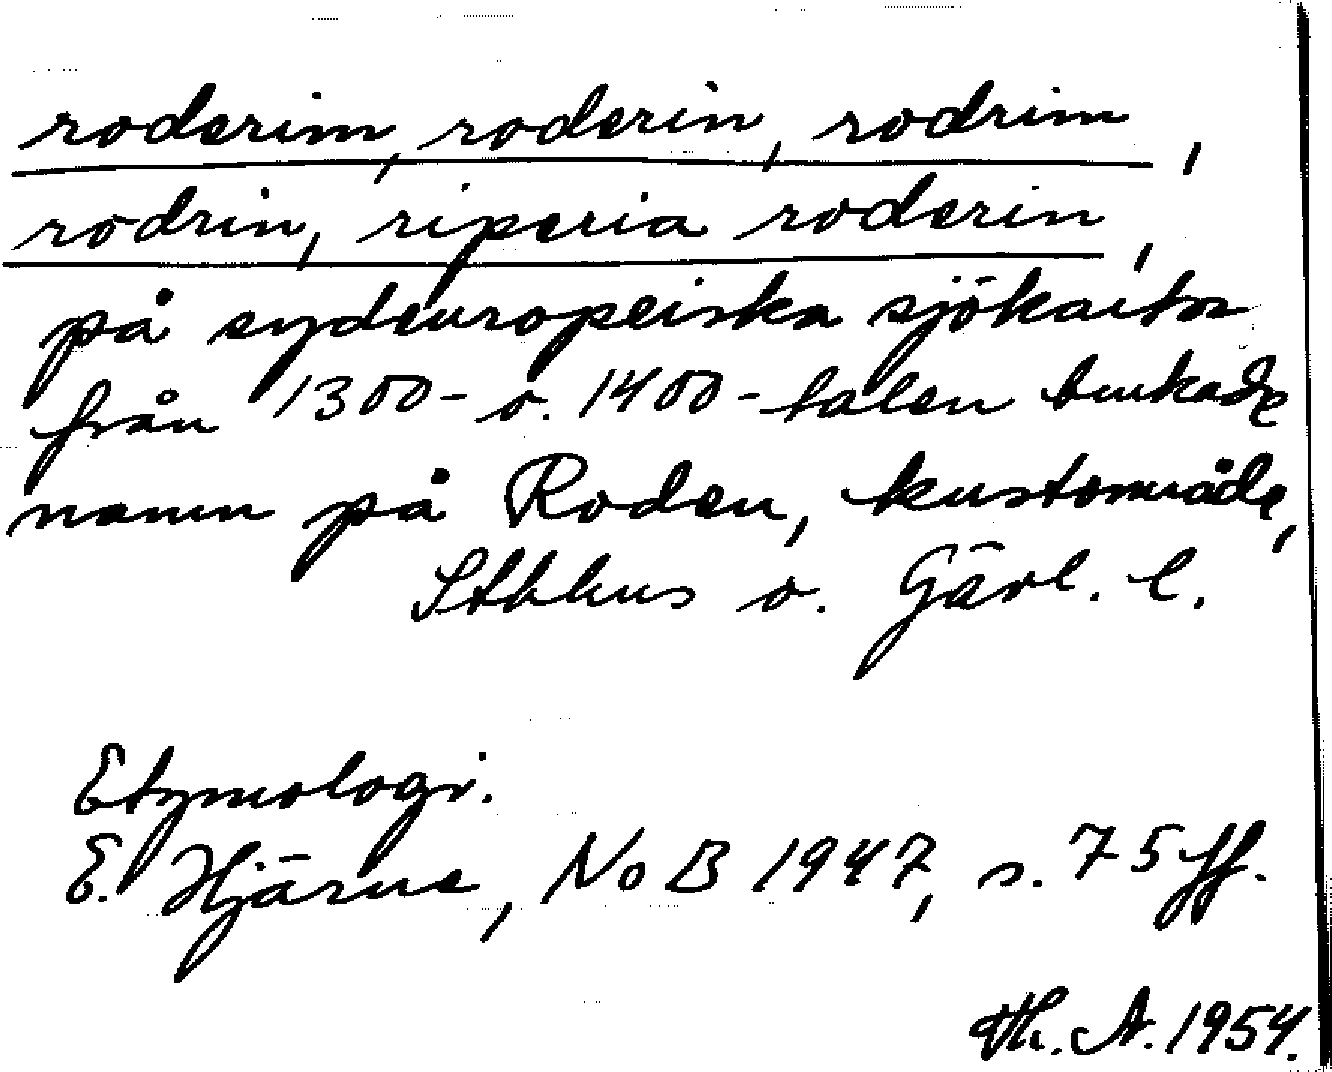 roderim, roderin, rodrim,
rodrin, riperia roderin,
på sydeuropeiska sjökartor
från 1300- o. 1400-talen brukade
namn på Roden, kustområde,
Sthlms o. Gävl. l.
Etymologi.
E. Hjärne, NoB 1947, s. 75 ff.
Th. A. 1954.